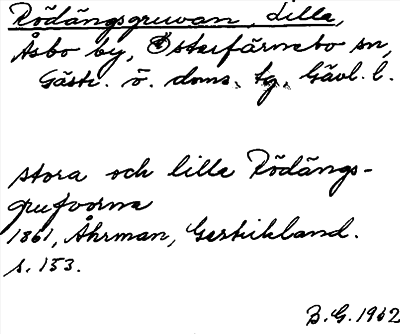 Rödängsgruvan, Lilla,
Åsbo by, Österfärnebo sn,
Gästr. ö. doms. tg, Gävl. l.
stora och lilla Rödängs-
grufvorna
1861, Åhrman, Gestrikland.
s. 153.
B.G. 1962